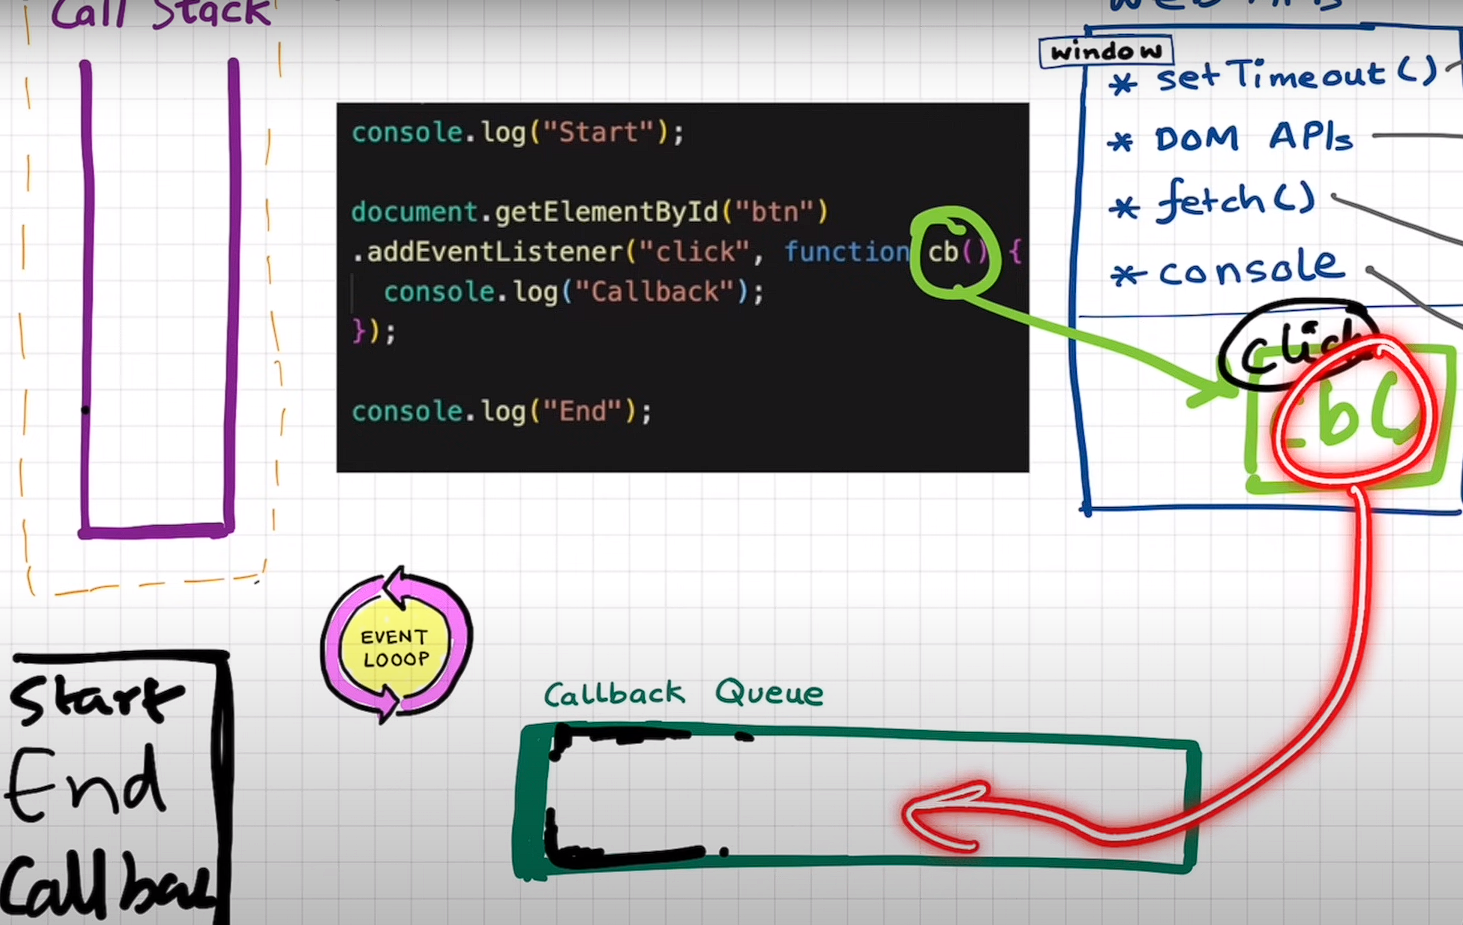 Call Stack
console.log("Start");
document.getElementById("btn")
.addEventListener("click", function cb() {
console.log("Callback");
});
console.log("End");
Web APIs
window
* setTimeout()
* DOM APIs
* fetch()
* console
click
cb()
EVENT
LOOOP
Callback Queue
Start
End
Callbac